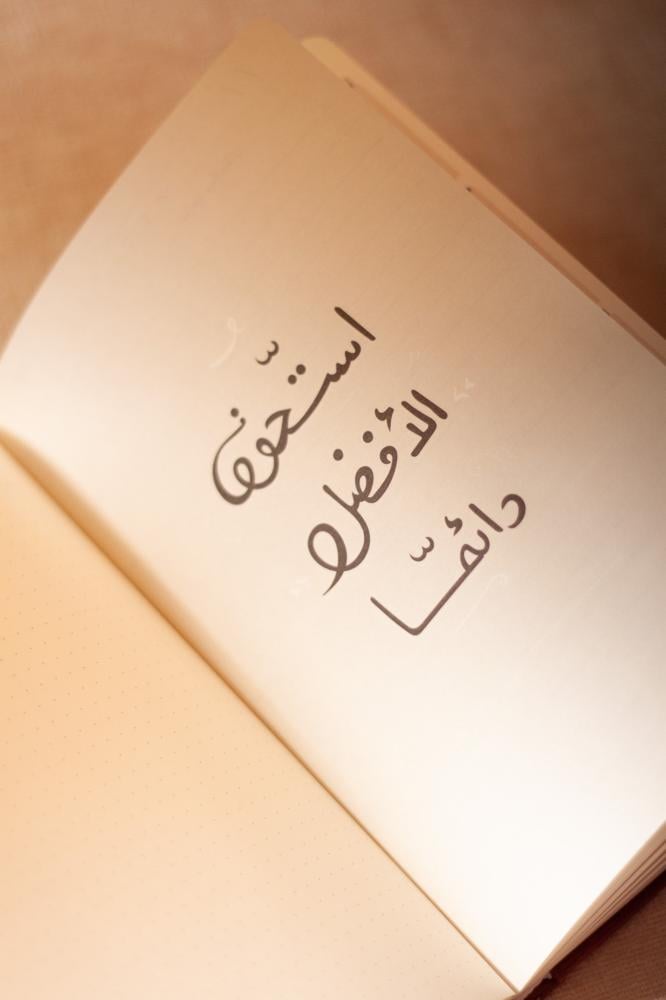 استحق
الأفضل
دائمًا